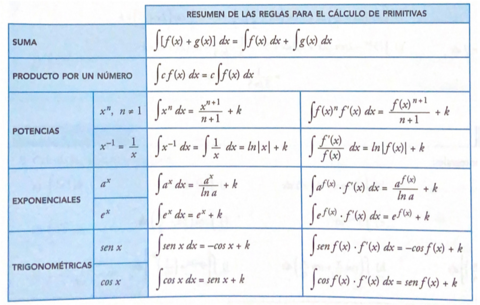 RESUMEN DE LAS REGLAS PARA EL CÁLCULO DE PRIMITIVAS
SUMA ∫[f(x) + g(x)] dx = ∫f(x) dx + ∫g(x) dx
PRODUCTO POR UN NÚMERO ∫c f(x) dx = c∫f(x) dx
POTENCIAS
xⁿ, n ≠ 1 ∫xⁿ dx = xⁿ⁺¹/(n+1) + k ∫f(x)ⁿ f'(x) dx = f(x)ⁿ⁺¹/(n+1) + k
x⁻¹ = 1/x ∫x⁻¹ dx = ∫1/x dx = ln|x| + k ∫f'(x)/f(x) dx = ln|f(x)| + k
EXPONENCIALES
aˣ ∫aˣ dx = aˣ/ln a + k ∫a^f(x) · f'(x) dx = a^f(x)/ln a + k
eˣ ∫eˣ dx = eˣ + k ∫e^f(x) · f'(x) dx = e^f(x) + k
TRIGONOMÉTRICAS
sen x ∫sen x dx = –cos x + k ∫sen f(x) · f'(x) dx = –cos f(x) + k
cos x ∫cos x dx = sen x + k ∫cos f(x) · f'(x) dx = sen f(x) + k